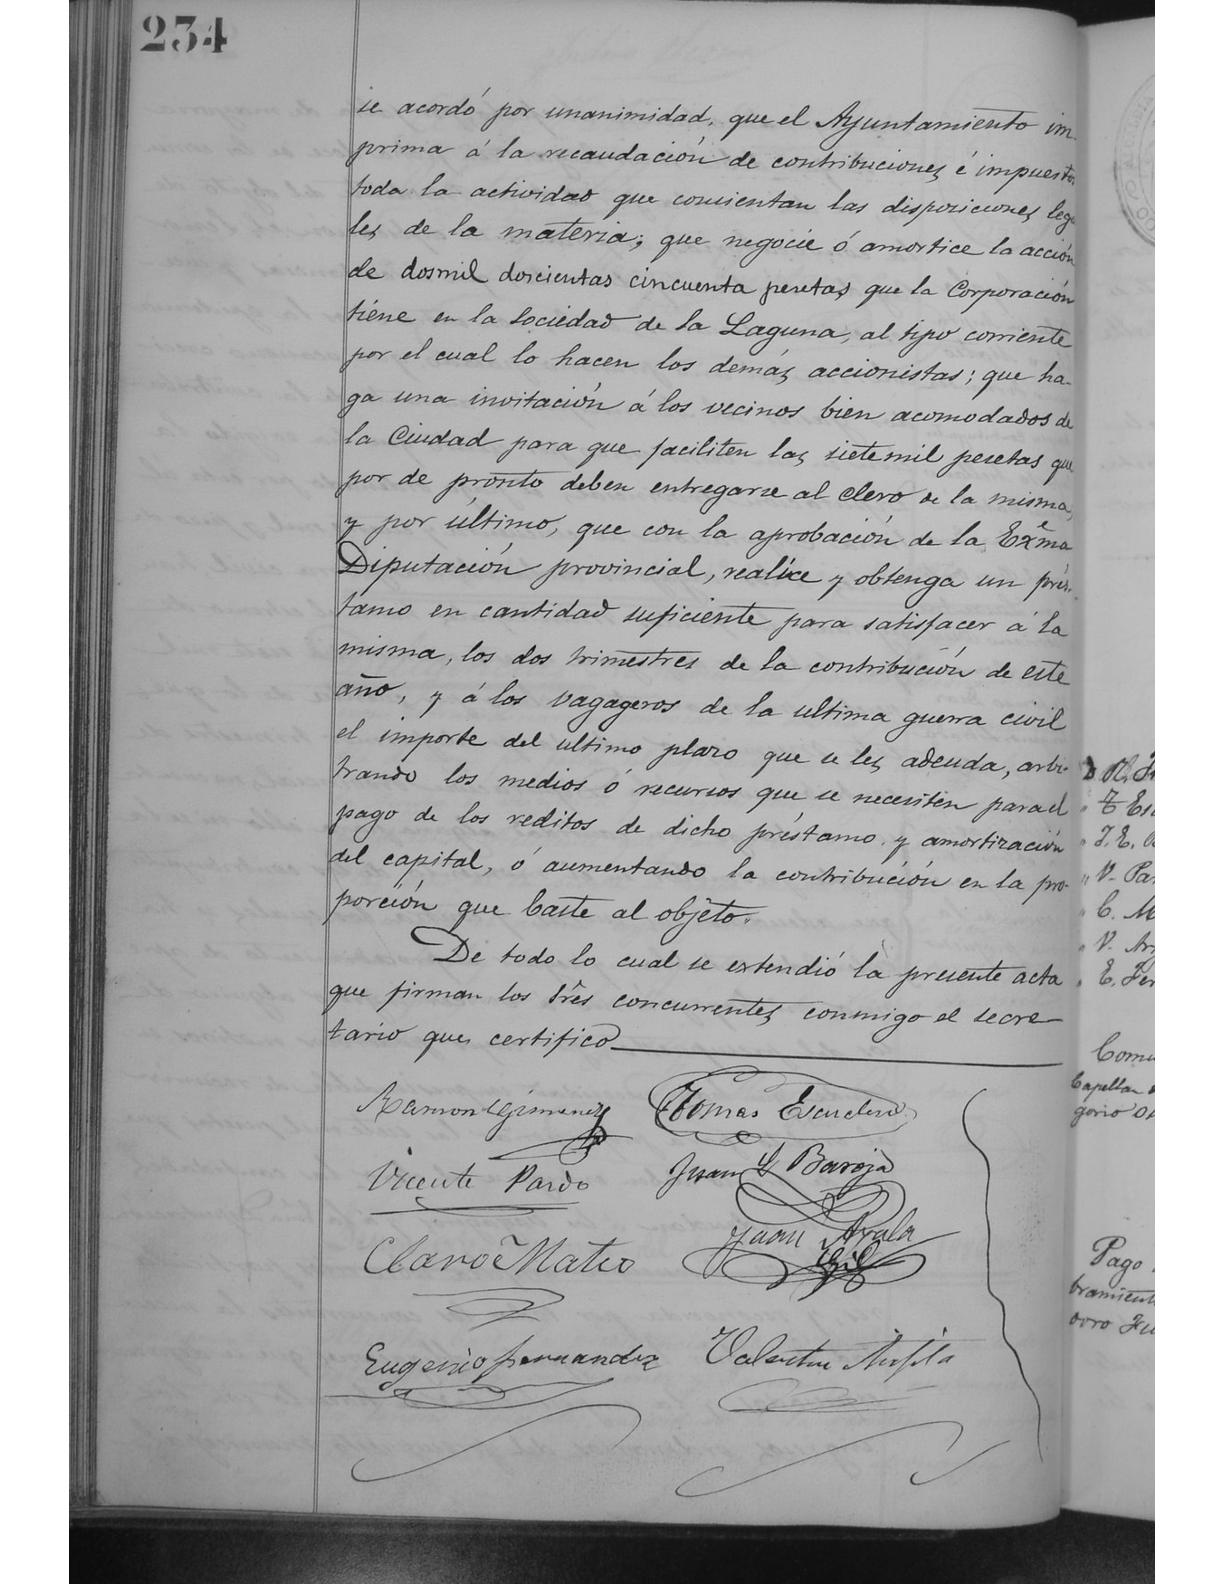 234
se acordó por unanimidad, que el Ayuntamiento im-
prima á la recaudación de contribuciones é impuestos
toda la actividad que consientan las disposiciones lega-
les de la materia; que negocie ó amortice la acción
de dosmil doscientas cincuenta pesetas que la Corporación
tiene en la Sociedad de la Laguna, al tipo corriente
por el cual lo hacen los demás accionistas; que ha-
ga una invitación á los vecinos bien acomodados de
la Ciudad para que faciliten las sietemil pesetas que
por de pronto deben entregarse al Clero de la misma,
y por último, que con la aprobación de la Exma
Diputación provincial, realice y obtenga un prés-
tamo en cantidad suficiente para satisfacer á la
misma, los dos trimestres de la contribución de este
año, y á los vagageros de la ultima guerra civil
el importe del ultimo plazo que se les adeuda, arbi-
trando los medios ó recursos que se necesiten para el
pago de los reditos de dicho préstamo y amortización
del capital, ó aumentando la contribución en la pro-
porción que baste al objeto.
De todo lo cual se extendió la presente acta
que firman los Srês concurrentes conmigo el secre-
tario que certifico
Ramon Gimenez Tomas Escudero
Vicente Pardo Juan Baroja
Claro Mateo Juan Ayala
Gil
Eugenio Fernandez Valentin
E
V. Pa
C. M
E. Fer
Comu
Capellan
gorio
Pago
bramient